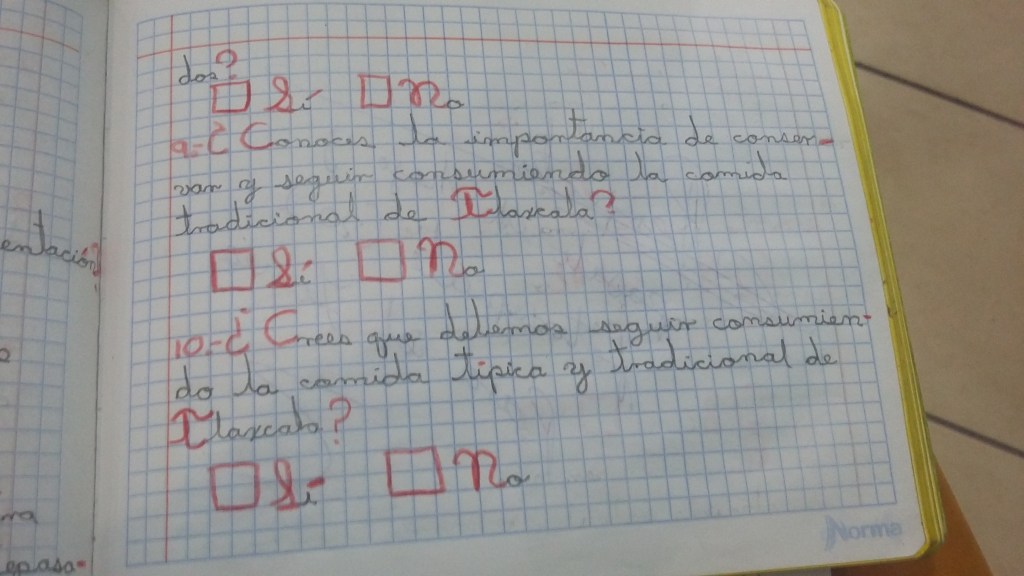 dos?
□ Si □ No
9.-¿Conoces la importancia de conser-
var y seguir consumiendo la comida
tradicional de Tlaxcala?
□ Si □ No
10.-¿Crees que debemos seguir consumien-
do la comida tipica y tradicional de
Tlaxcala?
□ Si □ No
Norma
entación?